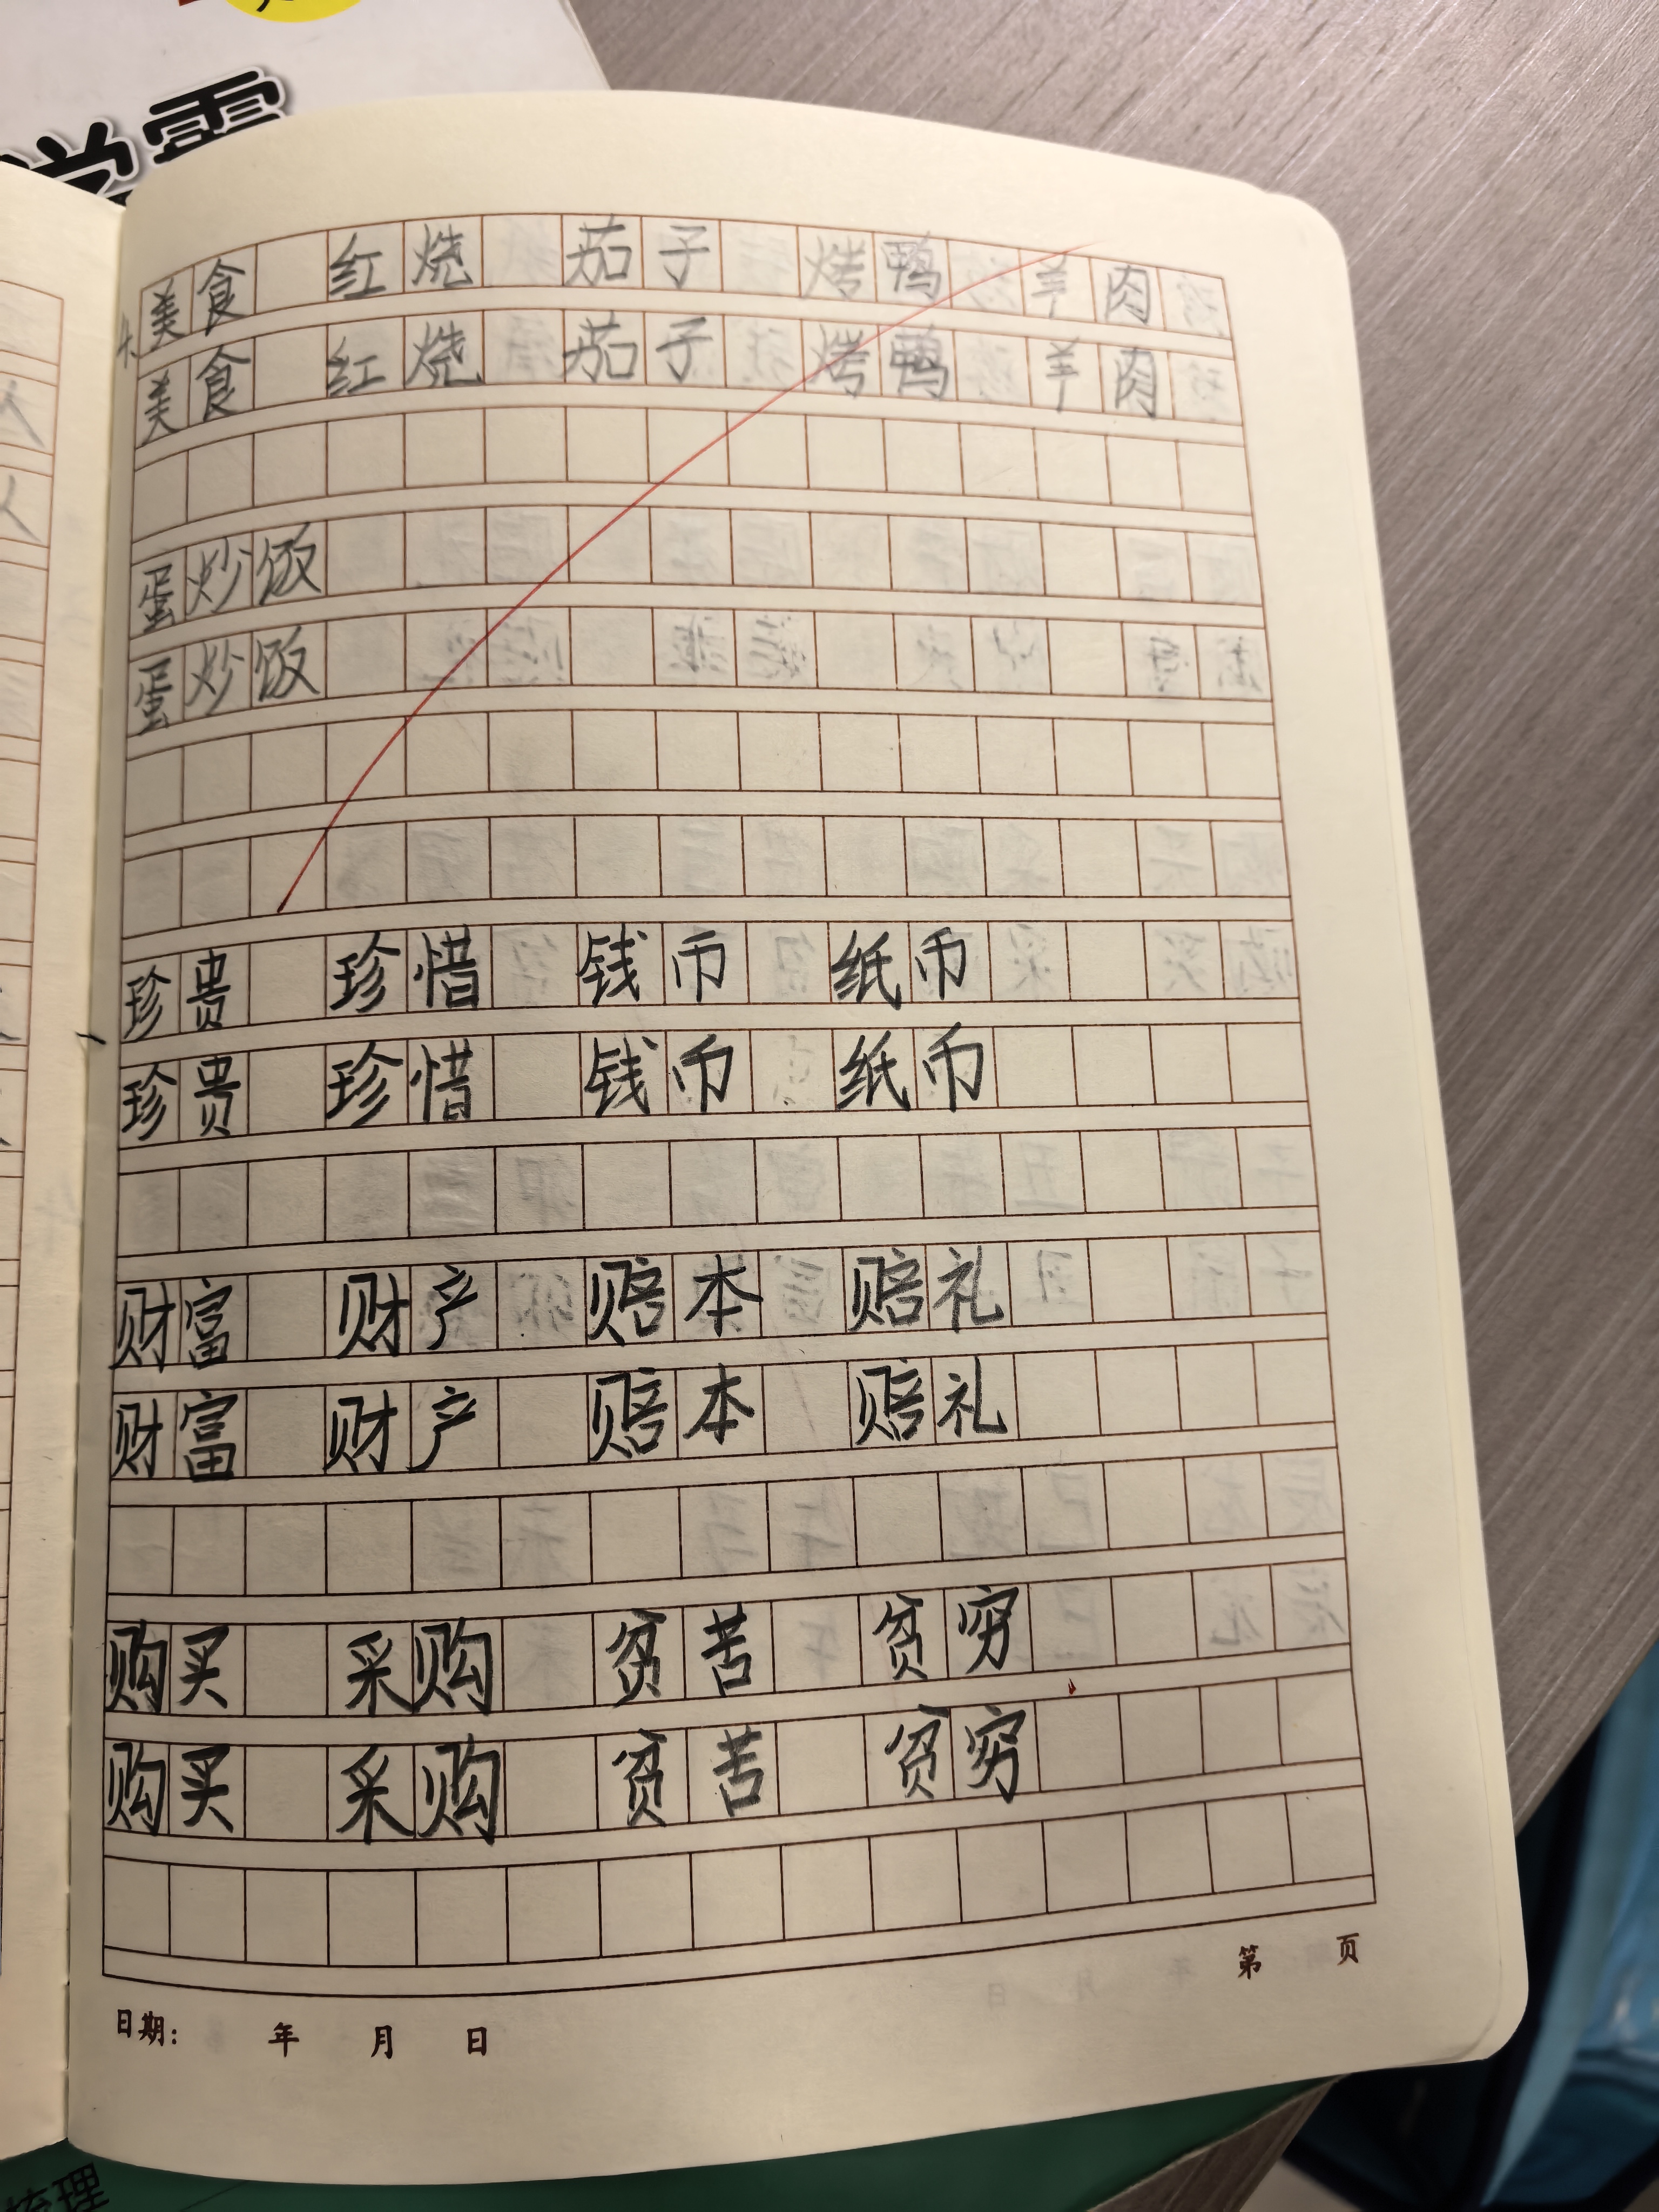 美食 红烧 茄子 烤鸭 羊肉
美食 红烧 茄子 烤鸭 羊肉
蛋炒饭
蛋炒饭
珍贵 珍惜 钱币 纸币
珍贵 珍惜 钱币 纸币
财富 财产 赔本 赔礼
财富 财产 赔本 赔礼
购买 采购 贫苦 贫穷
购买 采购 贫苦 贫穷
第 页
日期: 年 月 日
梳理